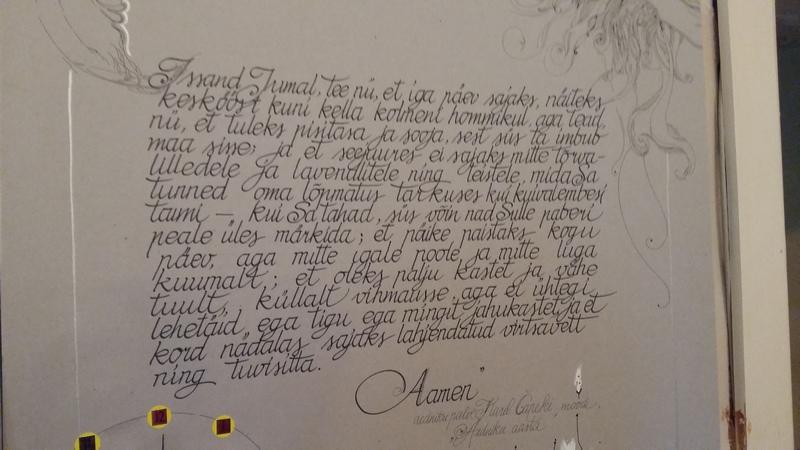 Issand Jumal, tee nii, et iga päev sajaks, näiteks
keskööst kuni kella kolmeni hommikul, aga tead,
nii, et tuleks pisitasa ja sooja, sest siis ta imbub
maa sisse; ja et seejuures ei sajaks mitte tõrva-
lilledele ja lavendlitele ning teistele, mida Sa
tunned oma lõpmatus tarkuses kui kuivalembesi
taimi – kui Sa tahad, siis võin nad Sulle paberi
peale üles märkida; et päike paistaks kogu
päev, aga mitte igale poole ja mitte liiga
kuumalt; et oleks palju kastet ja vähe
tuult, küllalt vihmausse, aga ei ühtegi
lehetäid, ega tigu ega mingit jahukastet, ja et
kord nädalas sajaks lahjendatud virtsavett
ning tuvisitta.
Aamen"
aedniku palve Karel Čapeki moodi,
"Aedniku aasta"